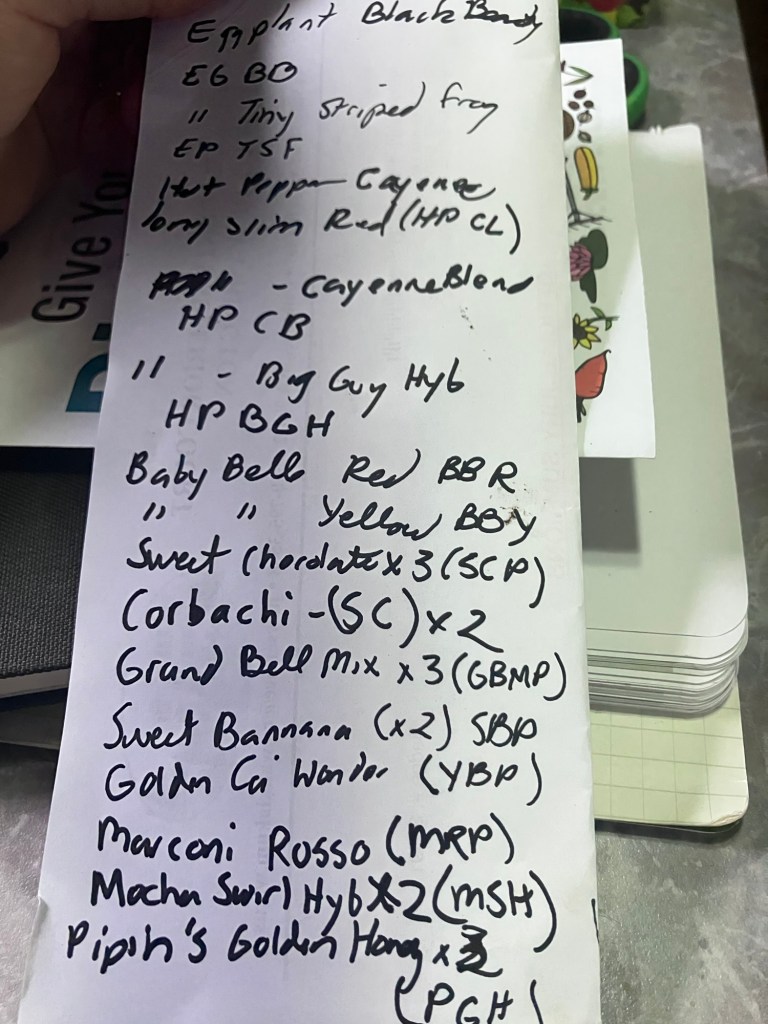 Eggplant Black Beauty
EG BB
" Tiny Striped Fray
EP TSF
Hot Pepper Cayenee
long Slim Red (HP CL)
" - Cayenne Blend
HP CB
" - Big Guy Hyb
HP BGH
Baby Bell Red BBR
" " Yellow BBY
Sweet Chocolate x 3 (SCP)
Corbachi - (SC) x 2
Grand Bell Mix x 3 (GBMP)
Sweet Bannana (x2) SBP
Goldn Ca Wonder (YBP)
Marconi Rosso (MRP)
Mocha Swirl Hyb x2 (MSH)
Pipin's Golden Honey x
(PGH)
Give You